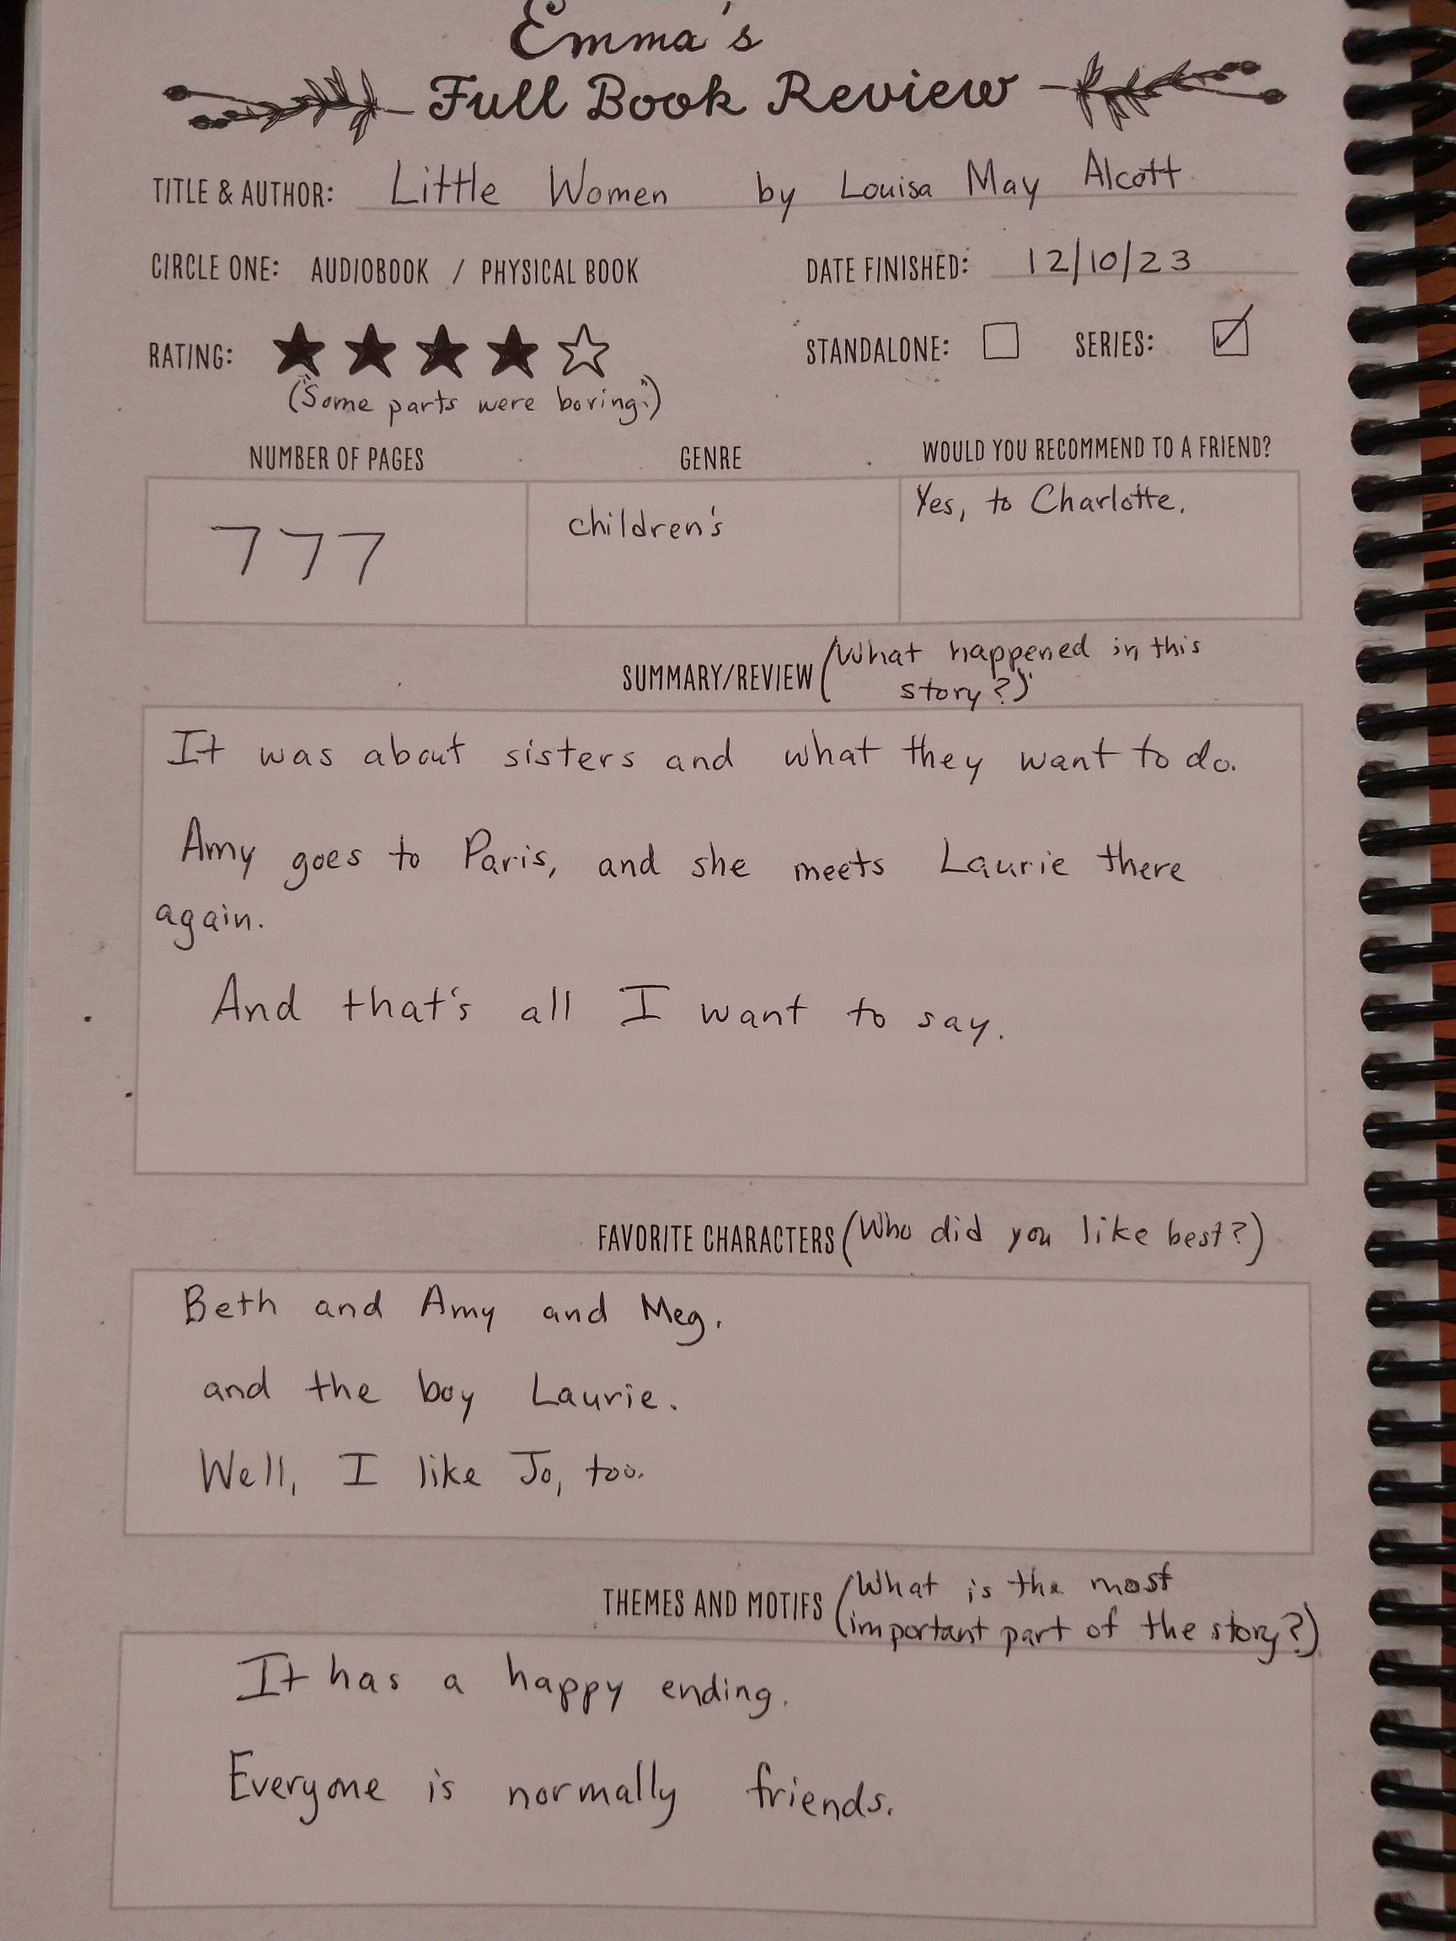 Emma's
Full Book Review
TITLE & AUTHOR: Little Women by Louisa May Alcott
CIRCLE ONE: AUDIOBOOK / PHYSICAL BOOK DATE FINISHED: 12/10/23
RATING: STANDALONE: SERIES:
("Some parts were boring.")
NUMBER OF PAGES GENRE WOULD YOU RECOMMEND TO A FRIEND?
777 children's Yes, to Charlotte.
SUMMARY/REVIEW (What happened in this
story?)
It was about sisters and what they want to do.
Amy goes to Paris, and she meets Laurie there
again.
And that's all I want to say.
FAVORITE CHARACTERS (Who did you like best?)
Beth and Amy and Meg.
and the boy Laurie.
Well, I like Jo, too.
THEMES AND MOTIFS (What is the most
important part of the story?)
It has a happy ending.
Everyone is normally friends.